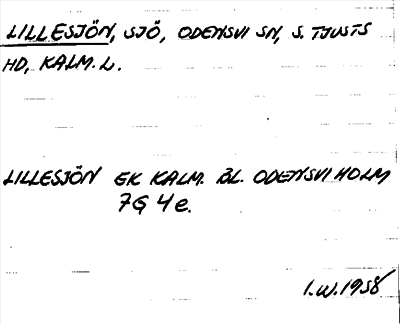 LILLESJÖN, SJÖ, ODENSVI SN, S. TJUSTS
HD, KALM. L.
LILLESJÖN EK KALM. BL. ODENSVIHOLM
7G 4e.
I.W. 1958